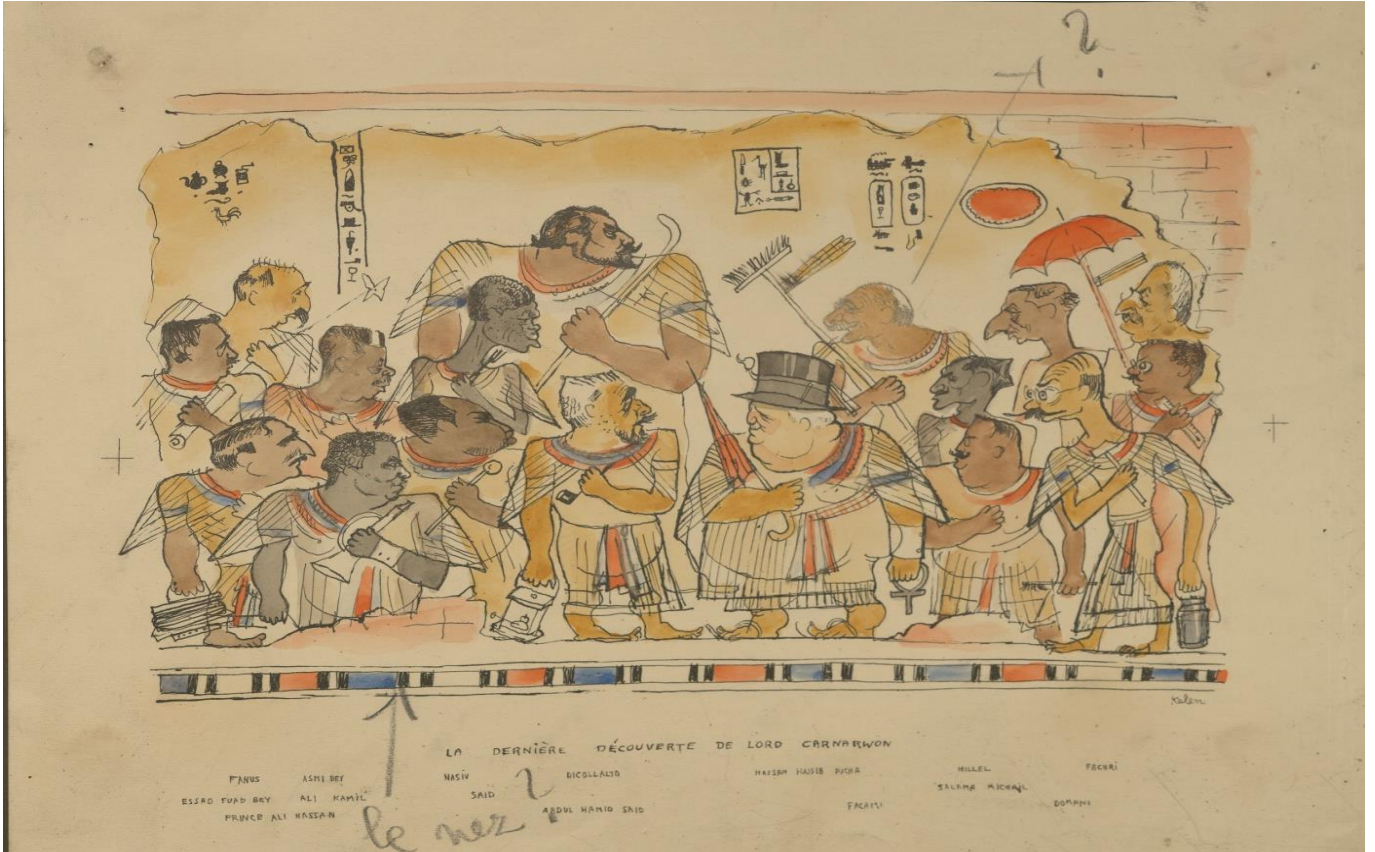 ?
Kelen
LA DERNIÈRE DÉCOUVERTE DE LORD CARNARWON
FANUS ASMI BEY NASIV DICOLLALID HASSAN HASSIB PACHA HILLEL FACHRI
ESSAD FUAD BEY ALI KAMIL SAID ? SALAMA MICHAIL
PRINCE ALI HASSAN ABDUL HAMID SAID DOMANI
le nez